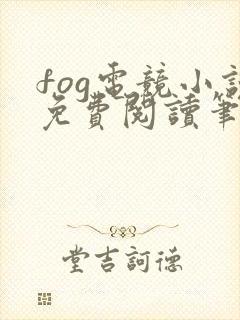 fog電競小說
免費閱讀筆
堂吉訶德